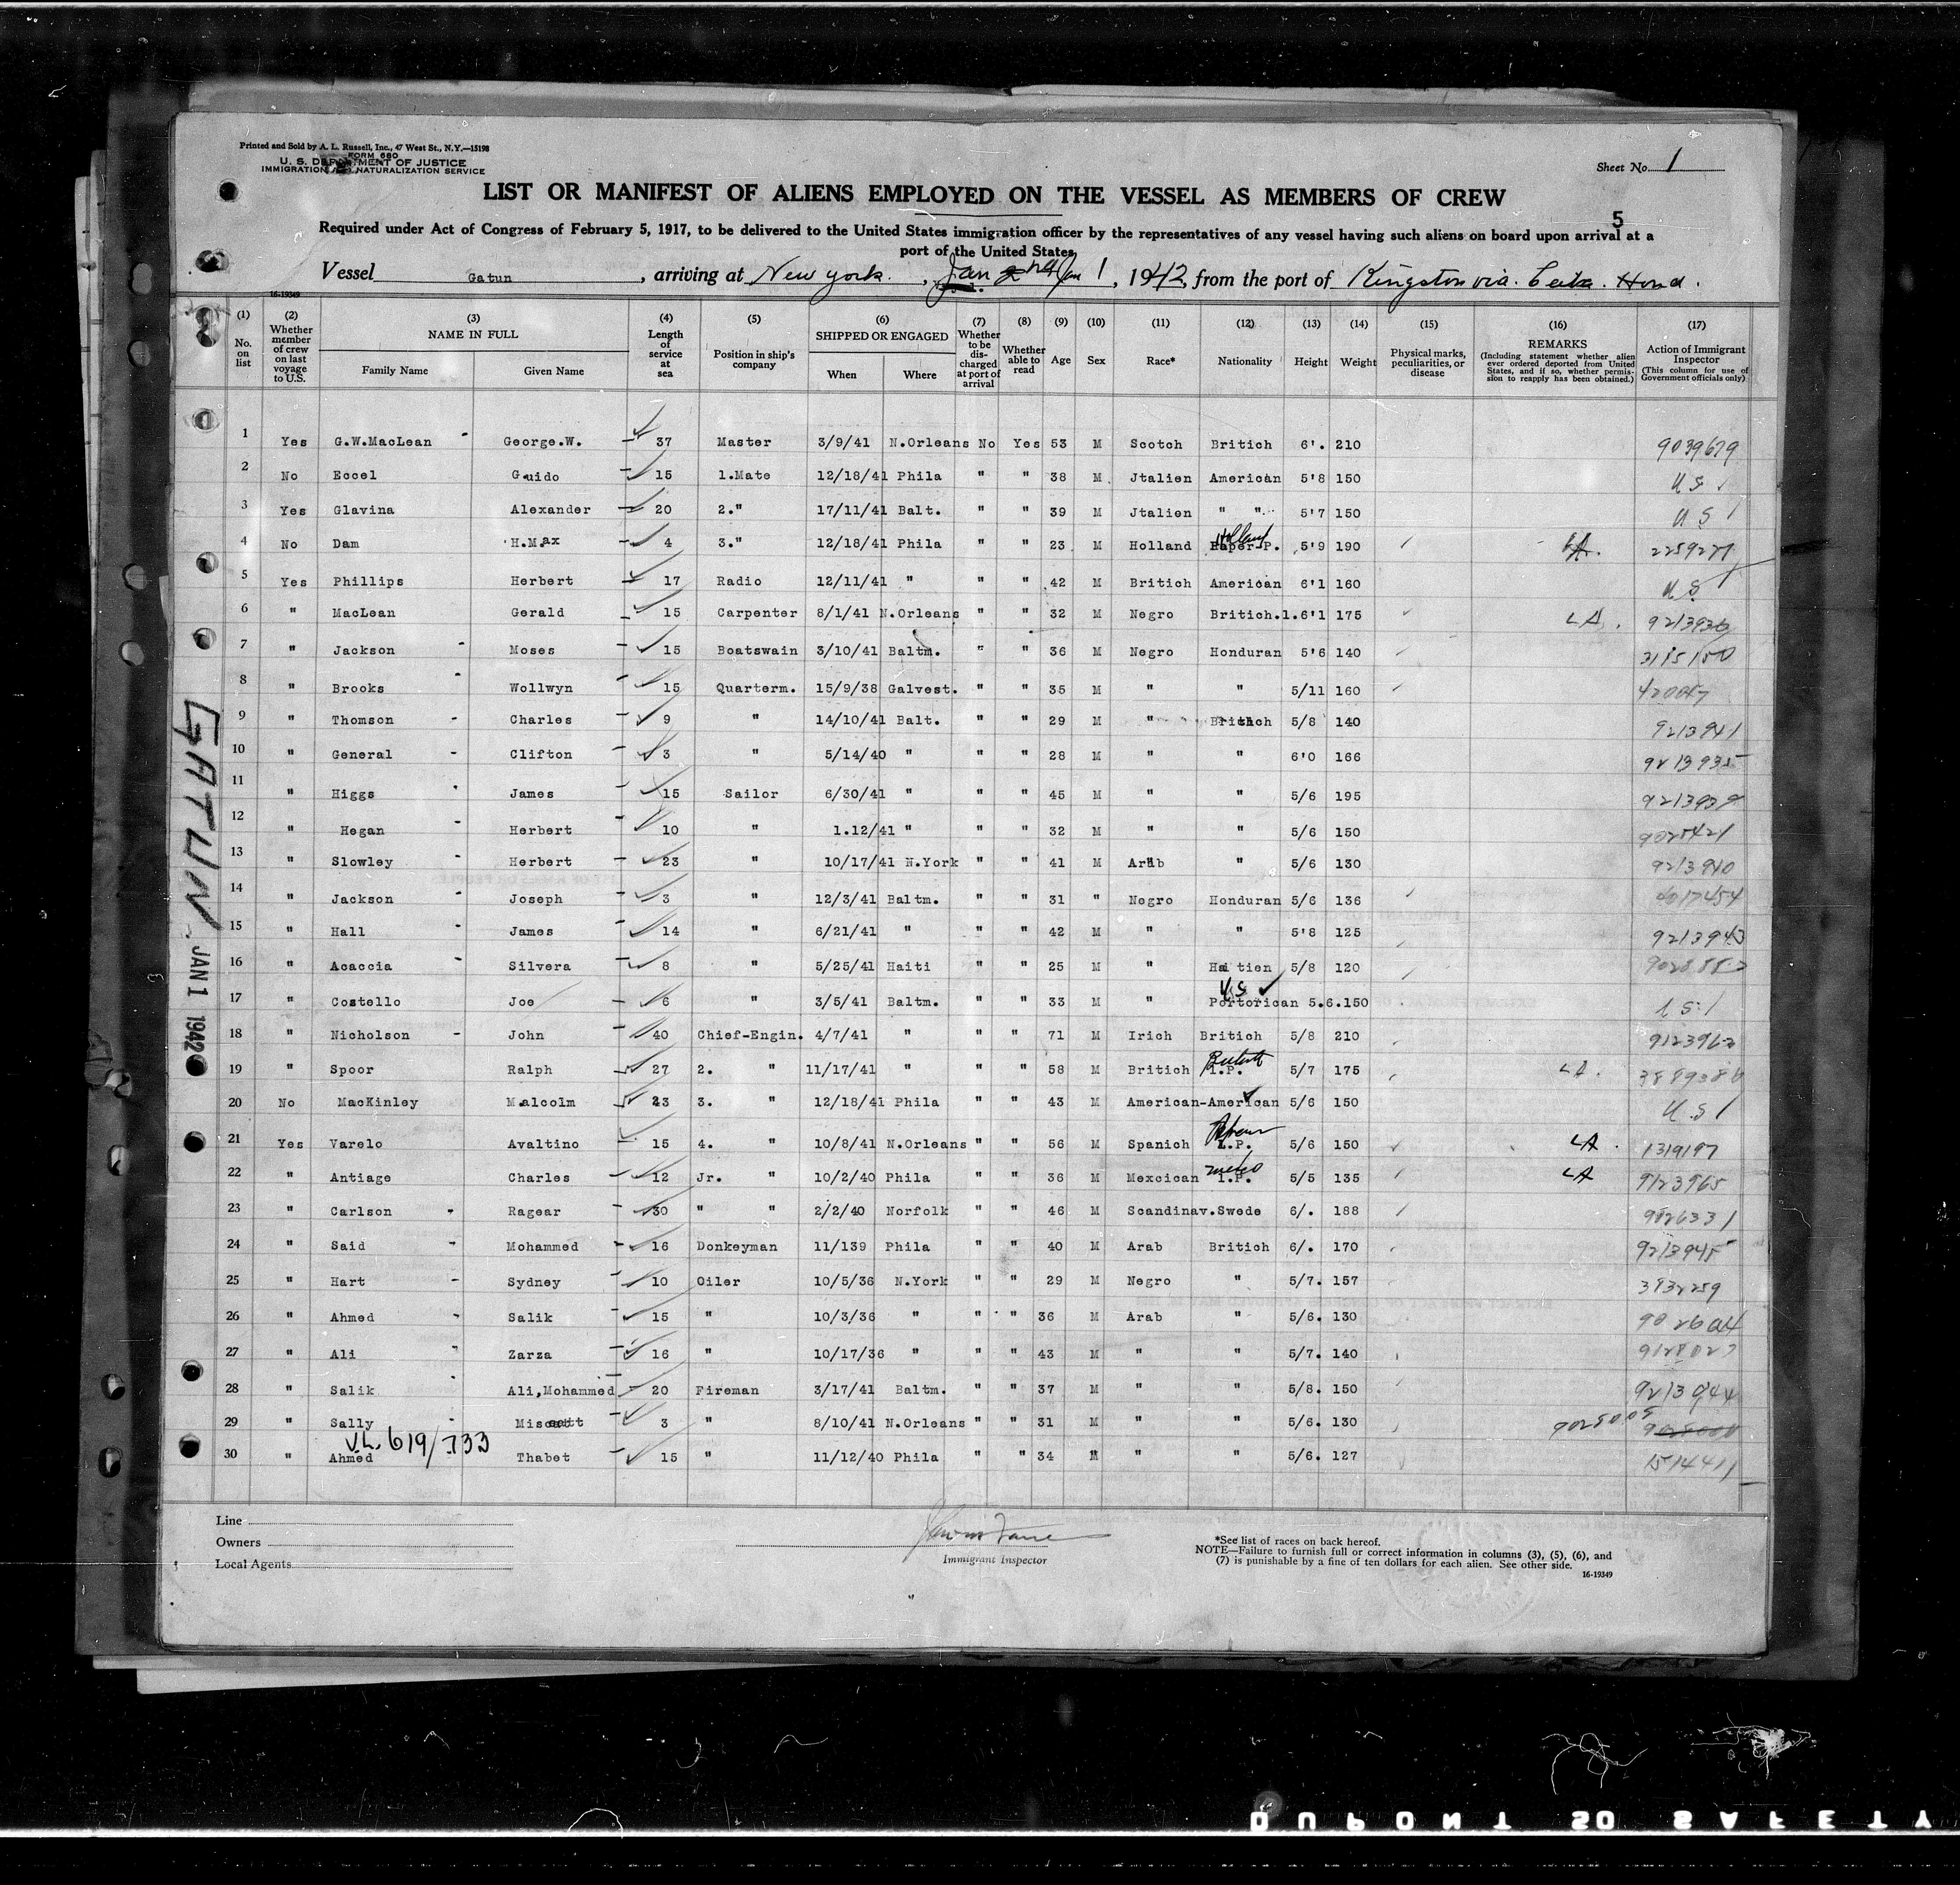 Printed and Sold by A. L. Russell, Inc., 47 West St., N.Y.—15198
FORM 680
U. S. DEPARTMENT OF JUSTICE
IMMIGRATION AND NATURALIZATION SERVICE
Sheet No. 1
LIST OR MANIFEST OF ALIENS EMPLOYED ON THE VESSEL AS MEMBERS OF CREW
5
Required under Act of Congress of February 5, 1917, to be delivered to the United States immigration officer by the representatives of any vessel having such aliens on board upon arrival at a
port of the United States
Vessel Gatun, arriving at New York, Jan 2nd Jan 1, 1942, from the port of Kingston via. Ceiba. Hond.
16-19349
(1) No. on list (2) Whether member of crew on last voyage to U.S. (3) NAME IN FULL Family Name Given Name (4) Length of service at sea (5) Position in ship's company (6) SHIPPED OR ENGAGED When Where (7) Whether to be discharged at port of arrival (8) Whether able to read (9) Age (10) Sex (11) Race* (12) Nationality (13) Height (14) Weight (15) Physical marks, peculiarities, or disease (16) REMARKS (Including statement whether alien ever ordered deported from United States, and if so, whether permission to reapply has been obtained.) (17) Action of Immigrant Inspector (This column for use of Government officials only)
1 Yes G.W.MacLean - George.W. 37 Master 3/9/41 N.Orleans No Yes 53 M Scotch Britich 6'. 210 9039679
2 No Eccel Guido 15 1.Mate 12/18/41 Phila " " 38 M Jtalien American 5'8 150 U S
3 Yes Glavina Alexander 20 2." 17/11/41 Balt. " " 39 M Jtalien " " 5'7 150 U S
4 No Dam H.Max 4 3." 12/18/41 Phila " " 23 M Holland Holland 5'9 190 LA. 2259277
5 Yes Phillips Herbert 17 Radio 12/11/41 " " " 42 M Britich American 6'1 160 U S
6 " MacLean Gerald 15 Carpenter 8/1/41 N.Orleans " " 32 M Negro Britich.1. 6'1 175 LA. 9213936
7 " Jackson - Moses 15 Boatswain 3/10/41 Baltm. " " 36 M Negro Honduran 5'6 140 3115150
8 " Brooks - Wollwyn 15 Quarterm. 15/9/38 Galvest. " " 35 M " " 5/11 160
9 " Thomson - Charles 9 " 14/10/41 Balt. " " 29 M " Britich 5/8 140 9213941
10 " General - Clifton 3 " 5/14/40 " " " 28 M " " 6'0 166 9213935
11 " Higgs - James 15 Sailor 6/30/41 " " " 45 M " " 5/6 195 9213939
12 " Hegan - Herbert 10 " 1.12/41 " " " 32 M " " 5/6 150 9025421
13 " Slowley - Herbert 23 " 10/17/41 N.York " " 41 M Arab " 5/6 130 9213940
14 " Jackson - Joseph 3 " 12/3/41 Baltm. " " 31 " Negro Honduran 5/6 136
15 " Hall - James 14 " 6/21/41 " " " 42 M " " 5'8 125 9213943
16 " Acaccia - Silvera 8 " 5/25/41 Haiti " " 25 M " Haitien 5/8 120
17 " Costello Joe 6 " 3/5/41 Baltm. " " 33 M " U.S. Portorican 5.6.150 U S
18 " Nicholson - John 40 Chief-Engin. 4/7/41 " " " 71 M Irich Britich 5/8 210 9123962
19 " Spoor Ralph 27 2. " 11/17/41 " " " 58 M Britich British 1.P. 5/7 175 LA.
20 No MacKinley Malcolm 23 3. " 12/18/41 Phila " " 43 M American-American 5/6 150 U.S
21 Yes Varelo Avaltino 15 4. " 10/8/41 N.Orleans " " 56 M Spanich 1.P. 5/6 150 LA. 1319197
22 " Antiage Charles 12 Jr. " 10/2/40 Phila " " 36 M Mexcican 1.P. 5/5 135 LA 9123965
23 " Carlson - Ragear 30 " " 2/2/40 Norfolk " " 46 M Scandinav.Swede 6/. 188 9026331
24 " Said - Mohammed 16 Donkeyman 11/139 Phila " " 40 M Arab Britich 6/. 170 9213945
25 " Hart - Sydney 10 Oiler 10/5/36 N.York " " 29 M Negro " 5/7. 157 3832259
26 " Ahmed - Salik 15 " 10/3/36 " " " 36 M Arab " 5/6. 130
27 " Ali - Zarza 16 " 10/17/36 " " " 43 M " " 5/7. 140
28 " Salik - Ali,Mohammed 20 Fireman 3/17/41 Baltm. " " 37 M " " 5/8. 150 9213944
29 " Sally - 3 " 8/10/41 N.Orleans " " 31 M " " 5/6. 130 9028005
V.L. 619/733
30 " Ahmed Thabet 15 " 11/12/40 Phila " " 34 M " " 5/6. 127 1514411
GATUN JAN 1 1942
Line
Owners
Local Agents
Immigrant Inspector
*See list of races on back hereof.
NOTE—Failure to furnish full or correct information in columns (3), (5), (6), and
(7) is punishable by a fine of ten dollars for each alien. See other side.
16-19349
DUPONT 50 SAFETY